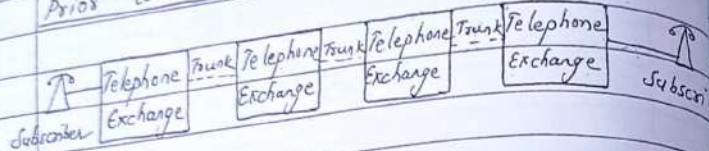 Prior
Telephone Exchange Trunk Telephone Exchange Trunk Telephone Exchange Trunk Telephone Exchange
Subscriber Subscri